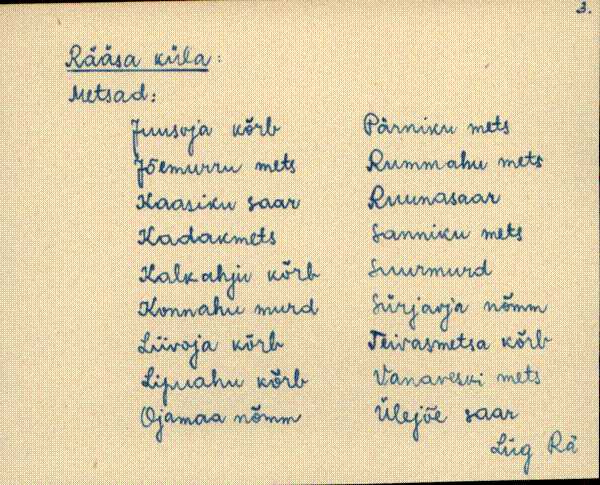 3.
Rääsa küla:
Metsad:
Juusoja kõrb
Jõemurru mets
Kaasiku saar
Kadakmets
Kalkahju kõrb
Konnahu murd
Liivoja kõrb
Lipuahu kõrb
Ojamaa nõmm
Pärniku mets
Rummahu mets
Ruunasaar
Sanniku mets
Suurmurd
Sürjavja nõmm
Teivasmetsa kõrb
Vanaveski mets
Ülejõe saar
Liig Rä